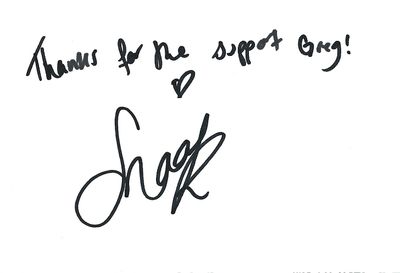 Thanks for the support Greg!